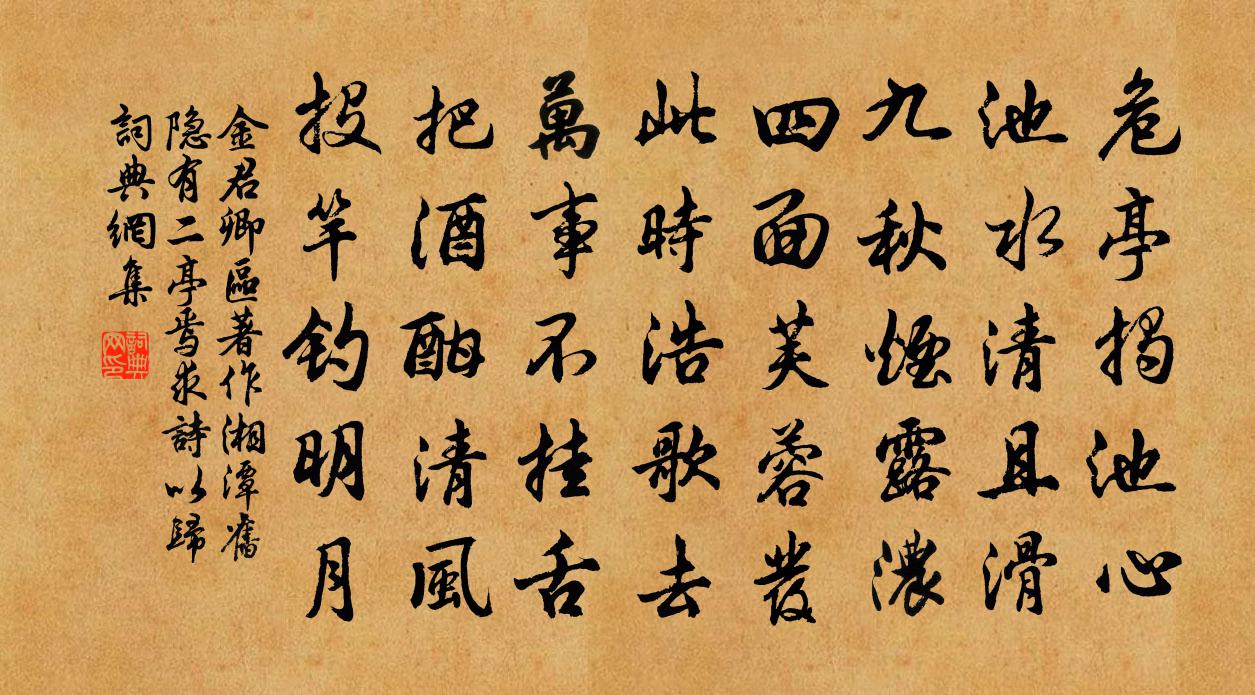 危亭揭池心
池水清且滑
九秋煙露濃
四面芙蓉發
此時浩歌去
萬事不挂舌
把酒酣清風
投竿釣明月
金君卿區著作湘潭舊
隐有二亭焉求詩以歸
詞典網集
詞典网印